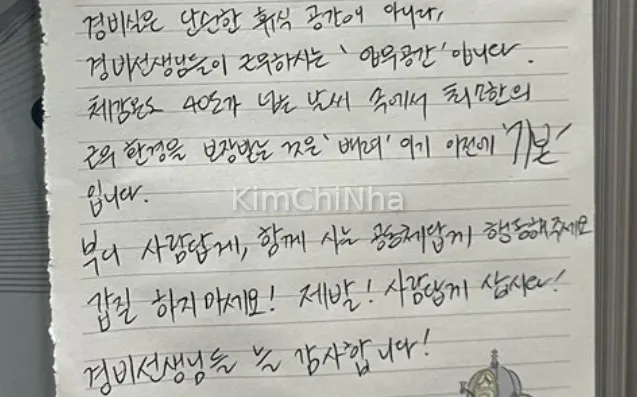 경비실은 단순한 휴식 공간이 아니라,
경비선생님들이 근무하시는 '업무공간' 입니다.
체감온도 40도가 넘는 날씨 속에서 최소한의
근무 환경을 보장받는 것은 '배려' 이기 이전에 '기본'
입니다.
KimChiNha
부디 사람답게, 함께 사는 공동체답게 행동해주세요
갑질 하지마세요! 제발! 사람답게 삽시다!
경비선생님들 늘 감사합니다!